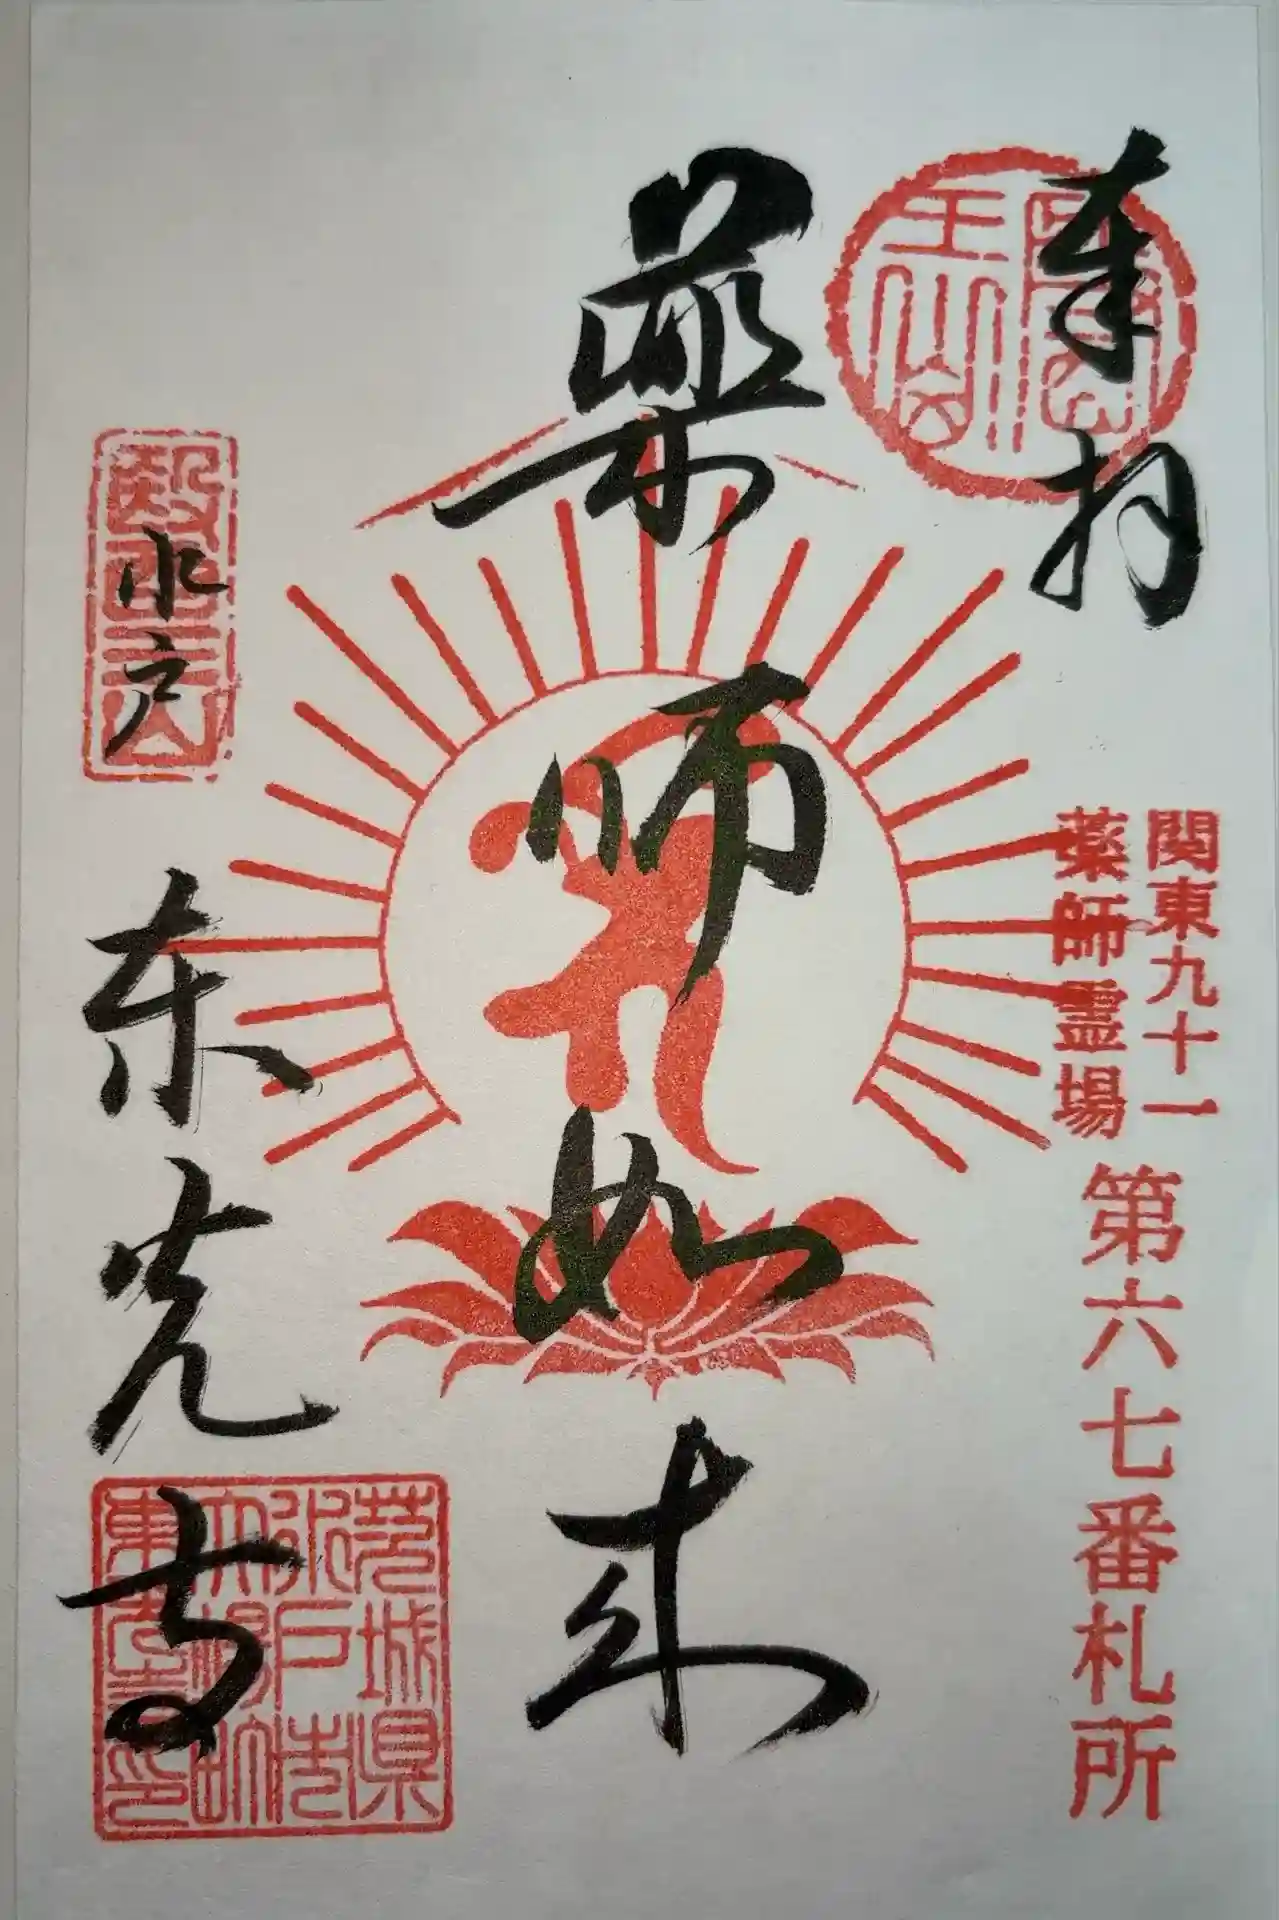 奉拝
関東九十一
薬師霊場
第六七番札所
薬師如来
水戸
東光寺
茨城県
水戸市
東光寺印